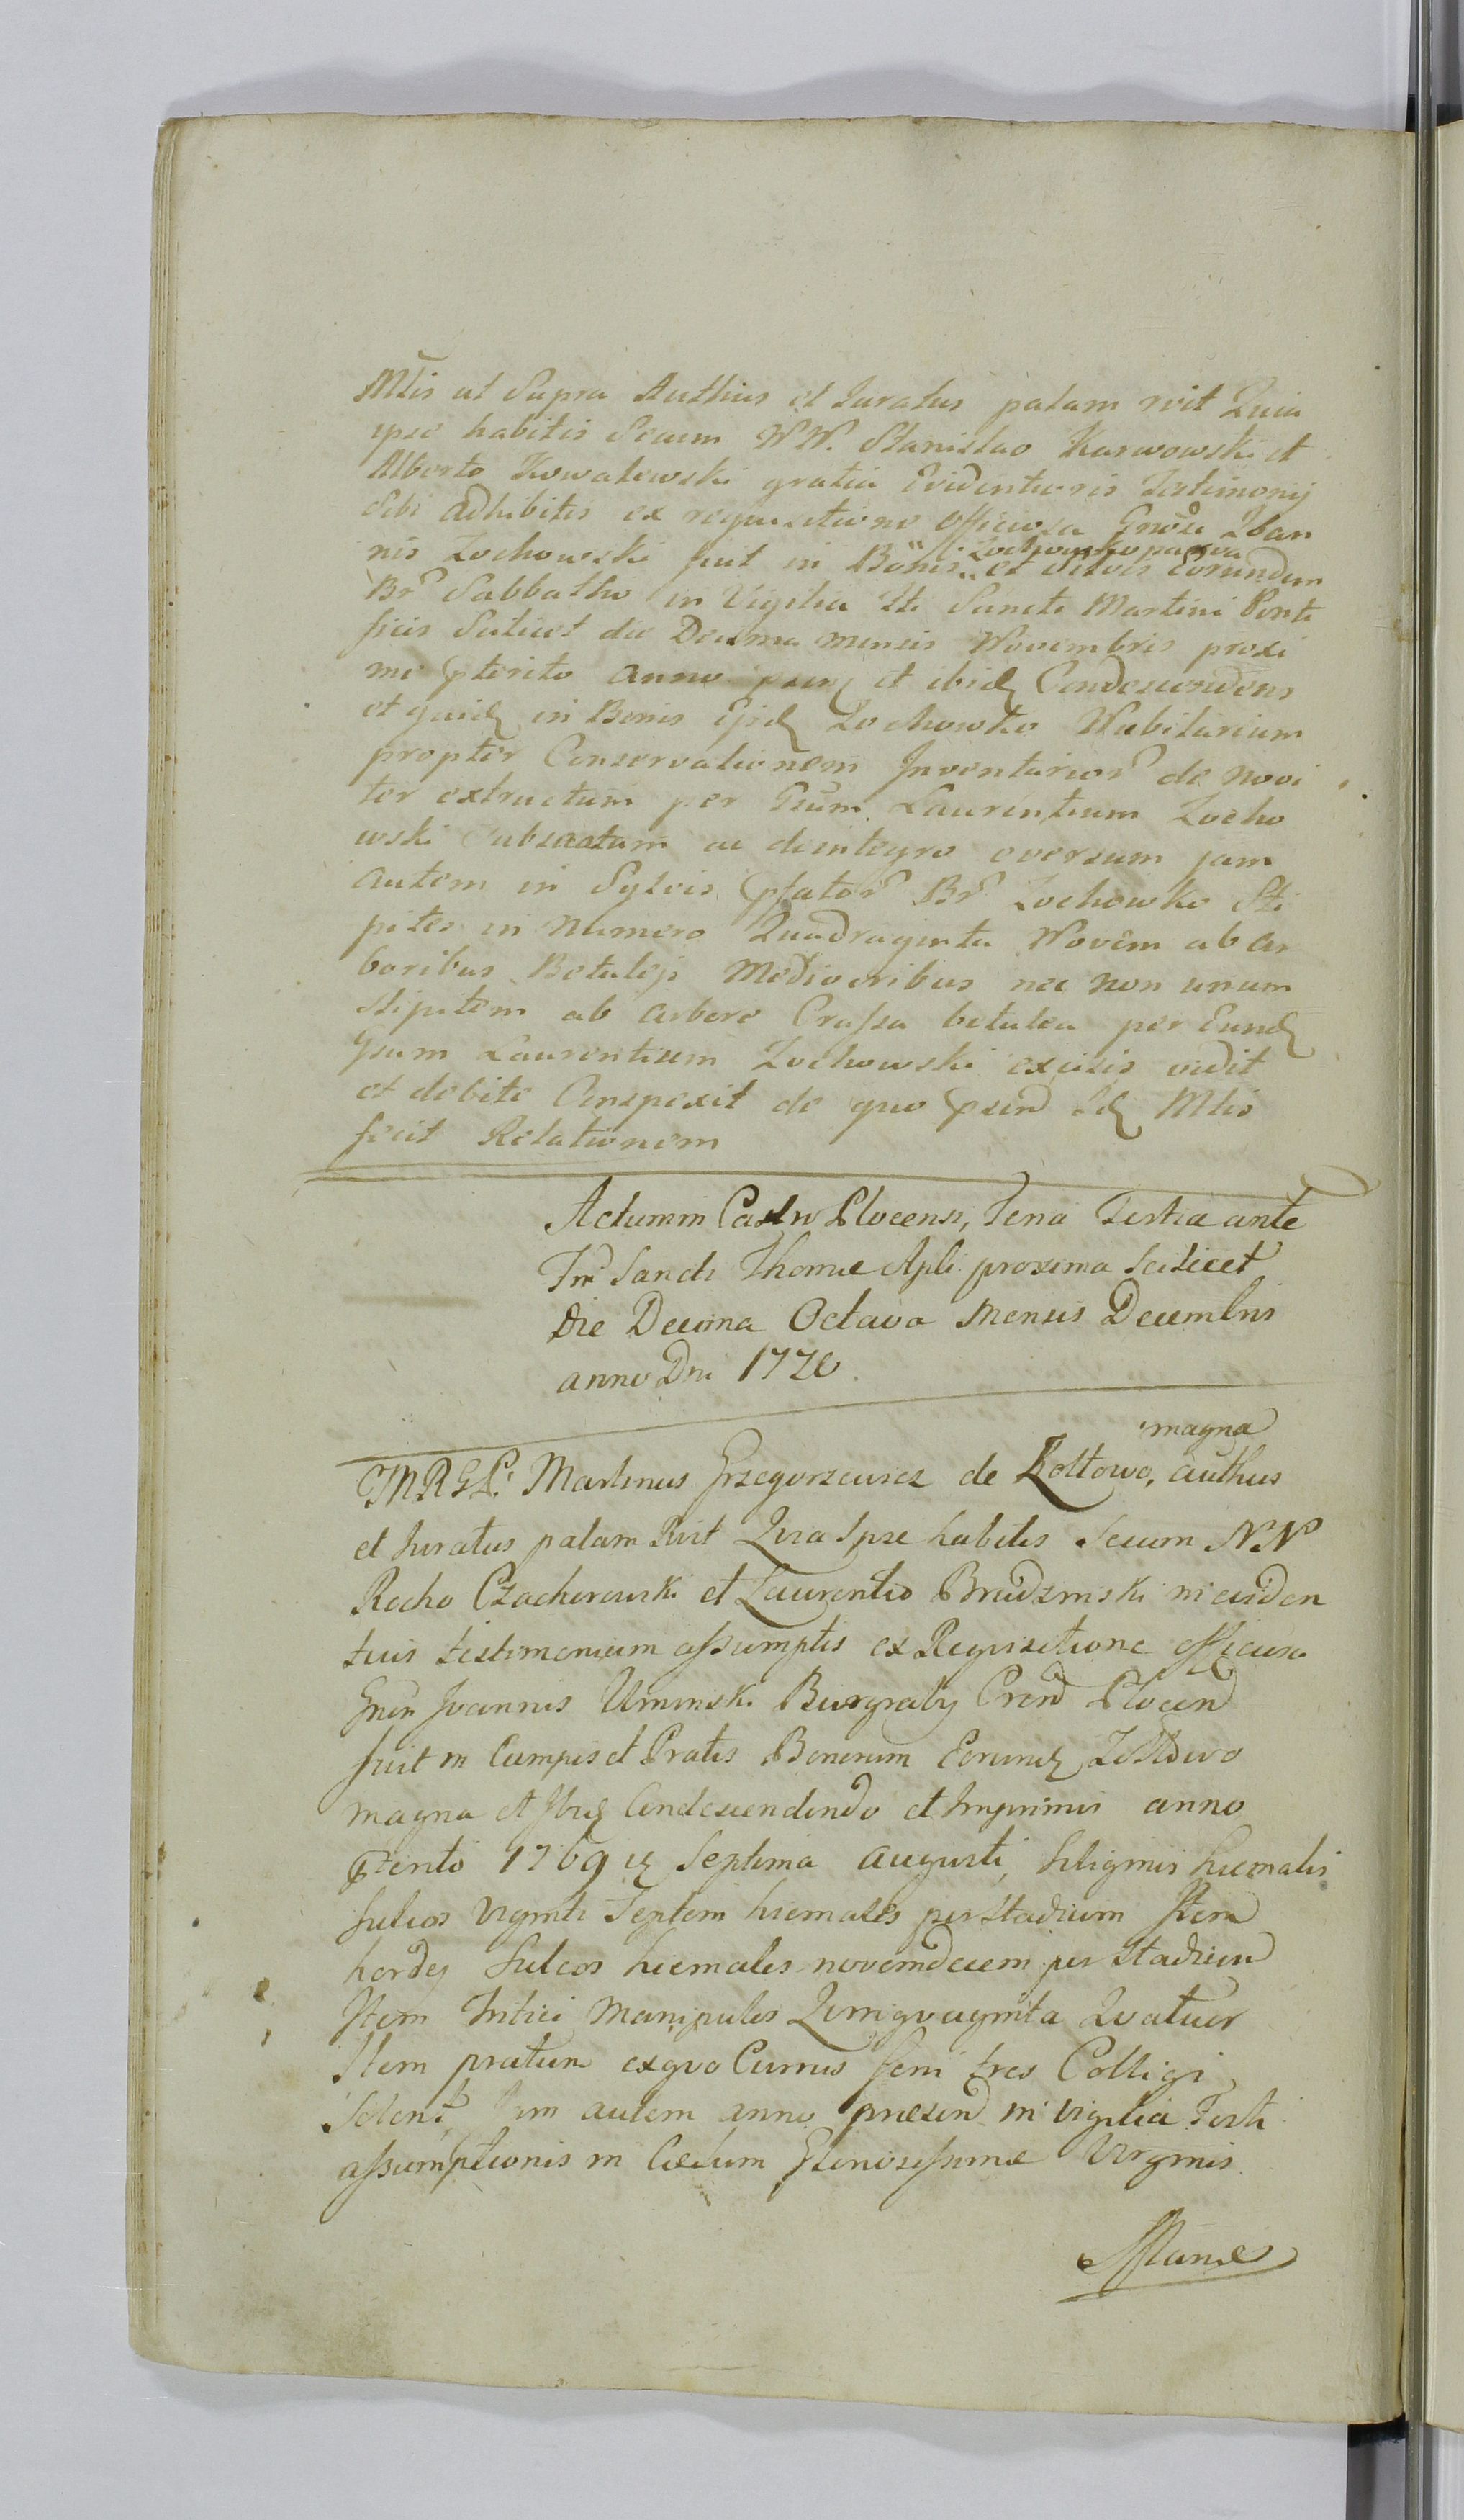 Mlis ut Supra Authus et Juratus palam rvit Quia
ipse habitis Secum NN. Stanislao Karwowski et
Alberto Kowalewski gratia Evidentioris Testimonij
sibi adhibitis ex requisitione officiosa Gnosi Joan
nis Zochowski fuit in Bonis Zochowko parva et Silvis Eorundem
Br Sabbatho in Vigilia Sti Sancti Martini Ponti
ficis Scilicet die Decima mensis Novembris proxi
me pterito anno psenj et ibidz Condescendens
et quidz in Bonis Ejsdz Zochowko Habitarium
propter Conservationem Inventarior de novi
ter extructum per Gsum. Laurentium Zocho
wski Subsactam ac deintegro eversum jam
autem in Sylvis pfator Br Zochowko Sti
pites in numero Quadraginta Novem ab ar
boribus Betulejs Mediocribus nec non unum
stipitem ab arbore Crassa betulea per Eundz
Gsum Laurentium Zochowski excisis vidit
et debite Conspexit de quo psend Idz Mlis
fecit Relationem
Actum in Castro Plocensi, Feria Tertia ante
Fm Sancti Thomæ Apli proxima Scilicet
Die Decima Octava Mensis Decembris
anno Dni 1770.
magna
MRGP. Martinus Grzegorzewicz de Zoltowo, authus
et Juratus palam Rvit Quia Ipse habitis Secum NN
Rocho Czachorowski et Laurentio Brudzinski in eviden
tius testimonium assumptis ex Requisitione officiosa
Gnosi Joannis Uminski Burgrabij Crend Plocen
fuit in Campis et Pratis Bonorum Eorundz Zoltowo
magna et Ibidz Condescendendo et Imprimis anno
pterito 1769 dz Septima augusti, Siliginis hiemalis
sulcos viginti Septem hiemales per Stadium Item
hordej Sulcos hiemales novemdecem per Stadium
Item Tritici Manipulos Quinquaginta Quatuor
Item pratum ex quo Currus feni tres Colligi
Solent Jam autem anno præsend in Vigilia Festi
assumptionis in Cælum Gloriosissimæ Virginis.